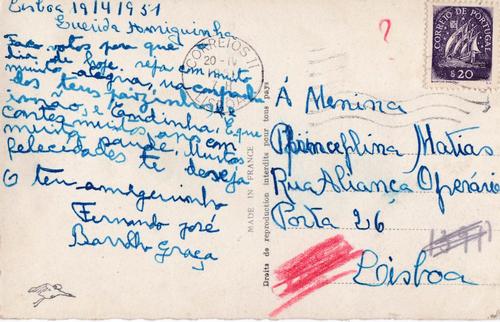 Lisboa 19/4/1951
Querida Amiguinha
Faço votos para que
dia de hoje, seja em muito
muito alegria, na companhia
dos teus paizinhos
irmão, e Tardinha, e que
contes muitos anos com
muita saude, muitas
felecidades te deseja
O teu amiguinho
Fernando José
Barrolho Graça
CORREIOS
20-IV
LISBOA
MADE IN FRANCE
Droits de reproduction interdits pour tous pays
?
CORREIO DE PORTUGAL
$20
Á Menina
Matias
Rua Aliança Operária
Porta 26
Lisboa